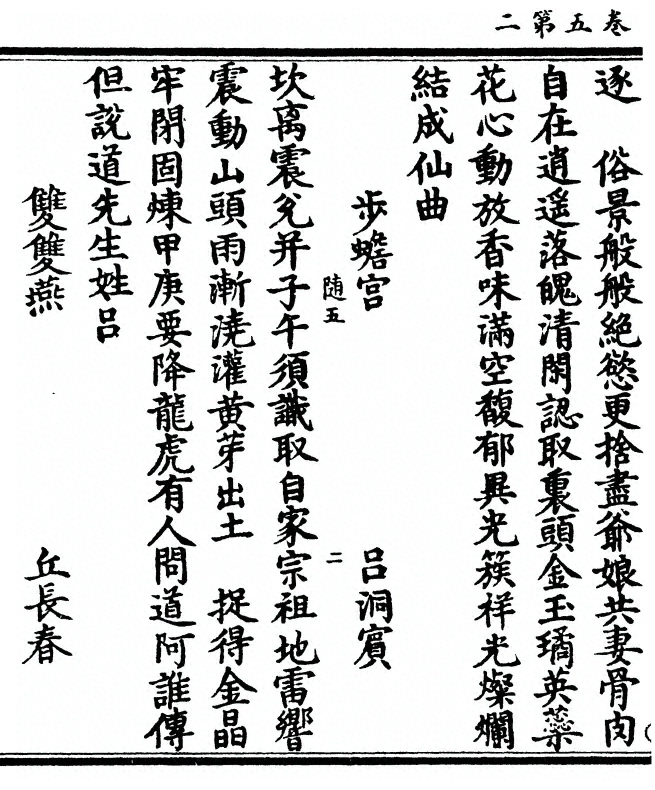 卷五第二
逐　俗景般般絶慾更捨盡爺娘共妻骨肉
自在逍遥落魄清閑認取裏頭金玉璚英蘂
花心動放香味滿空馥郁異光簇祥光燦爛
結成仙曲
步蟾宫　吕洞賓
随五　二
坎离震兊并子午須識取自家宗祖地雷響
震動山頭雨漸澆灌黄芽出土　捉得金晶
牢閉固煉甲庚要降龍虎有人問道阿誰傳
但説道先生姓吕
雙雙燕　丘長春